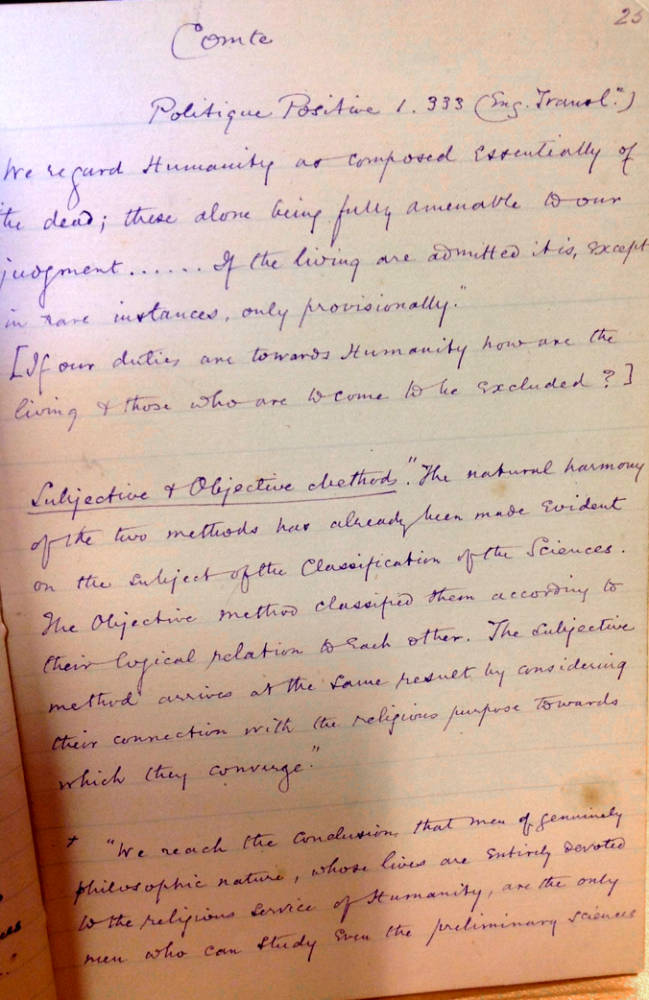 25
Comte
Politique Positive 1. 333 (Eng. Transl.n)
We regard Humanity as composed essentially of
the dead; these alone being fully amenable to our
judgment...... If the living are admitted it is, except
in rare instances, only provisionally."
[If our duties are towards Humanity how are the
living & those who are to come to be excluded?]
Subjective & Objective Methods. "The natural harmony
of the two methods has already been made evident
on the subject of the Classification of the Sciences.
The Objective method classified them according to
their logical relation to each other. The Subjective
method arrives at the same result by considering
their connection with the religious purpose towards
which they converge."
+ "We reach the conclusion, that men of genuinely
philosophic nature, whose lives are entirely devoted
to the religious service of Humanity, are the only
men who can study even the preliminary sciences